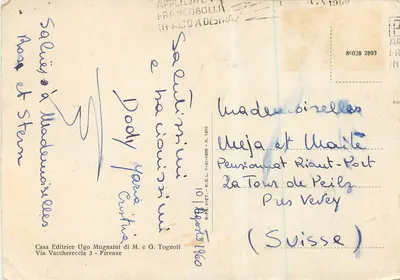 APPLICATE I
FRANCOBOLLI
IN ALTO A DESTRA
1960
80028 2893
Saluti à Mademoiselles
Rosa et Stern
Salutissimi
e bacionissimi
Dody Maria
Cristina
10 / Agosto 1960
Mademoiselles
Meja et Maité
Pensionnat Riant-Port
La Tour de Peilz
Pres Vevey
(Suisse)
Casa Editrice Ugo Mugnaini di M. e G. Tognoli
Via Vacchereccia 3 - Firenze